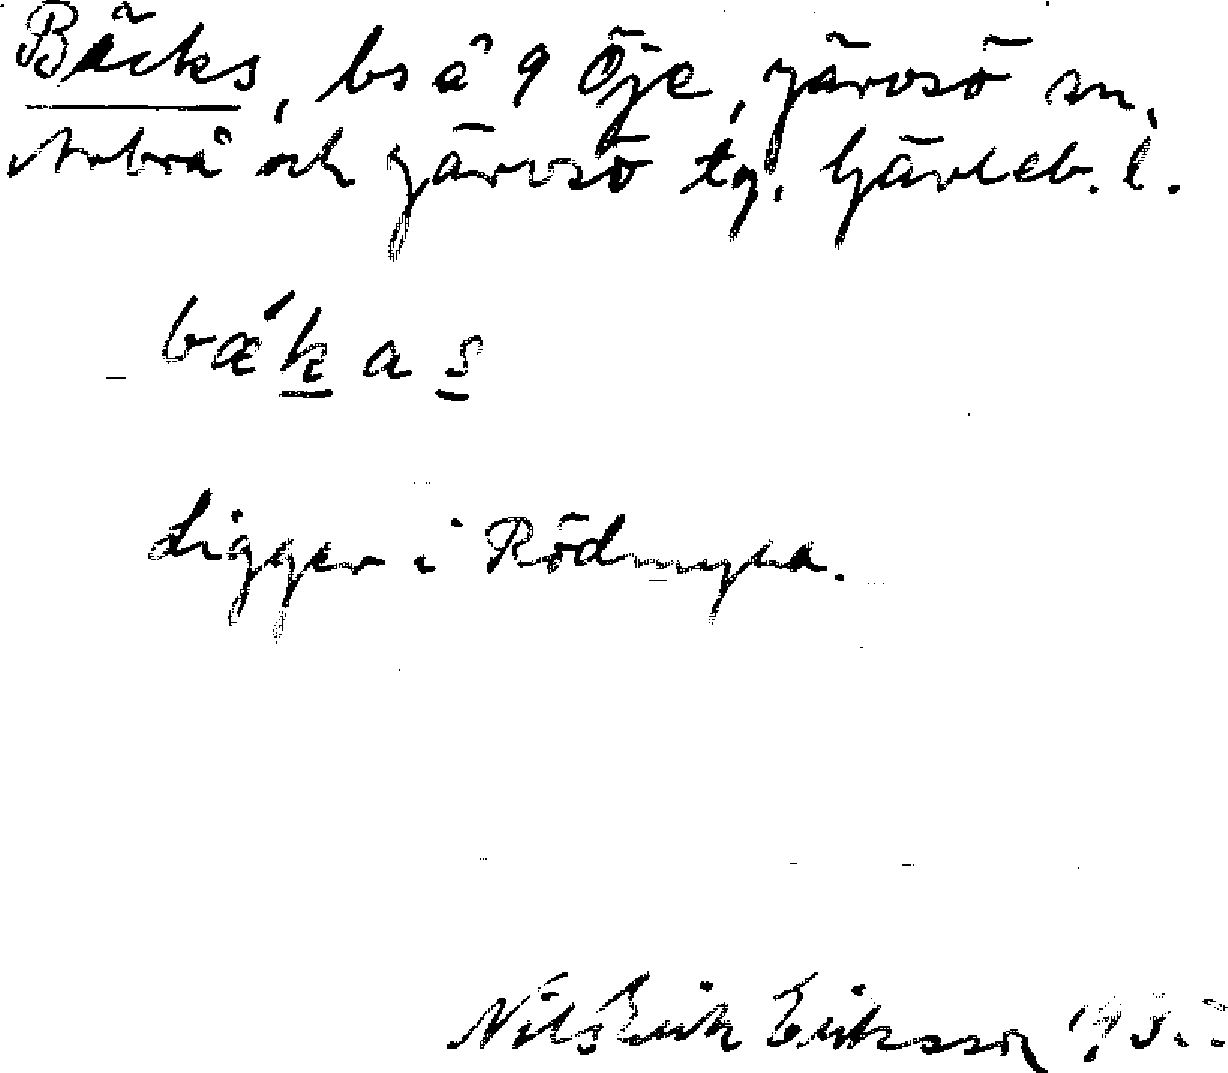 Bäcks, bs å 9 Öje, Järvsö sn,
Arbrå och Järvsö tg. Gävleb. l.
bæ´kas
Ligger i Rödmyra.
Nils Erik Eriksson